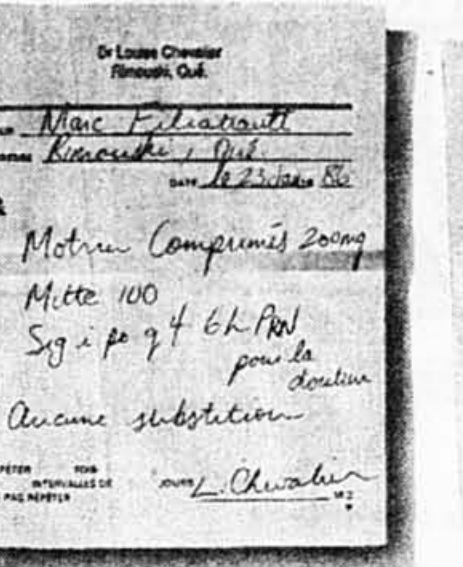 Dr Louise Chevalier
Rimouski, Qué.
Marc Filiatrault
Rimouski, Qué.
DATE le 23 Jan. 86
Motrin Comprimés 200mg
Mitte 100
Sig i po q 4 6h PRN
pour la
douleur
Aucune substitution
PÉTER FOIS
INTERVALLES DE JOURS L. Chevalier
PAS RÉPÉTER M.D.